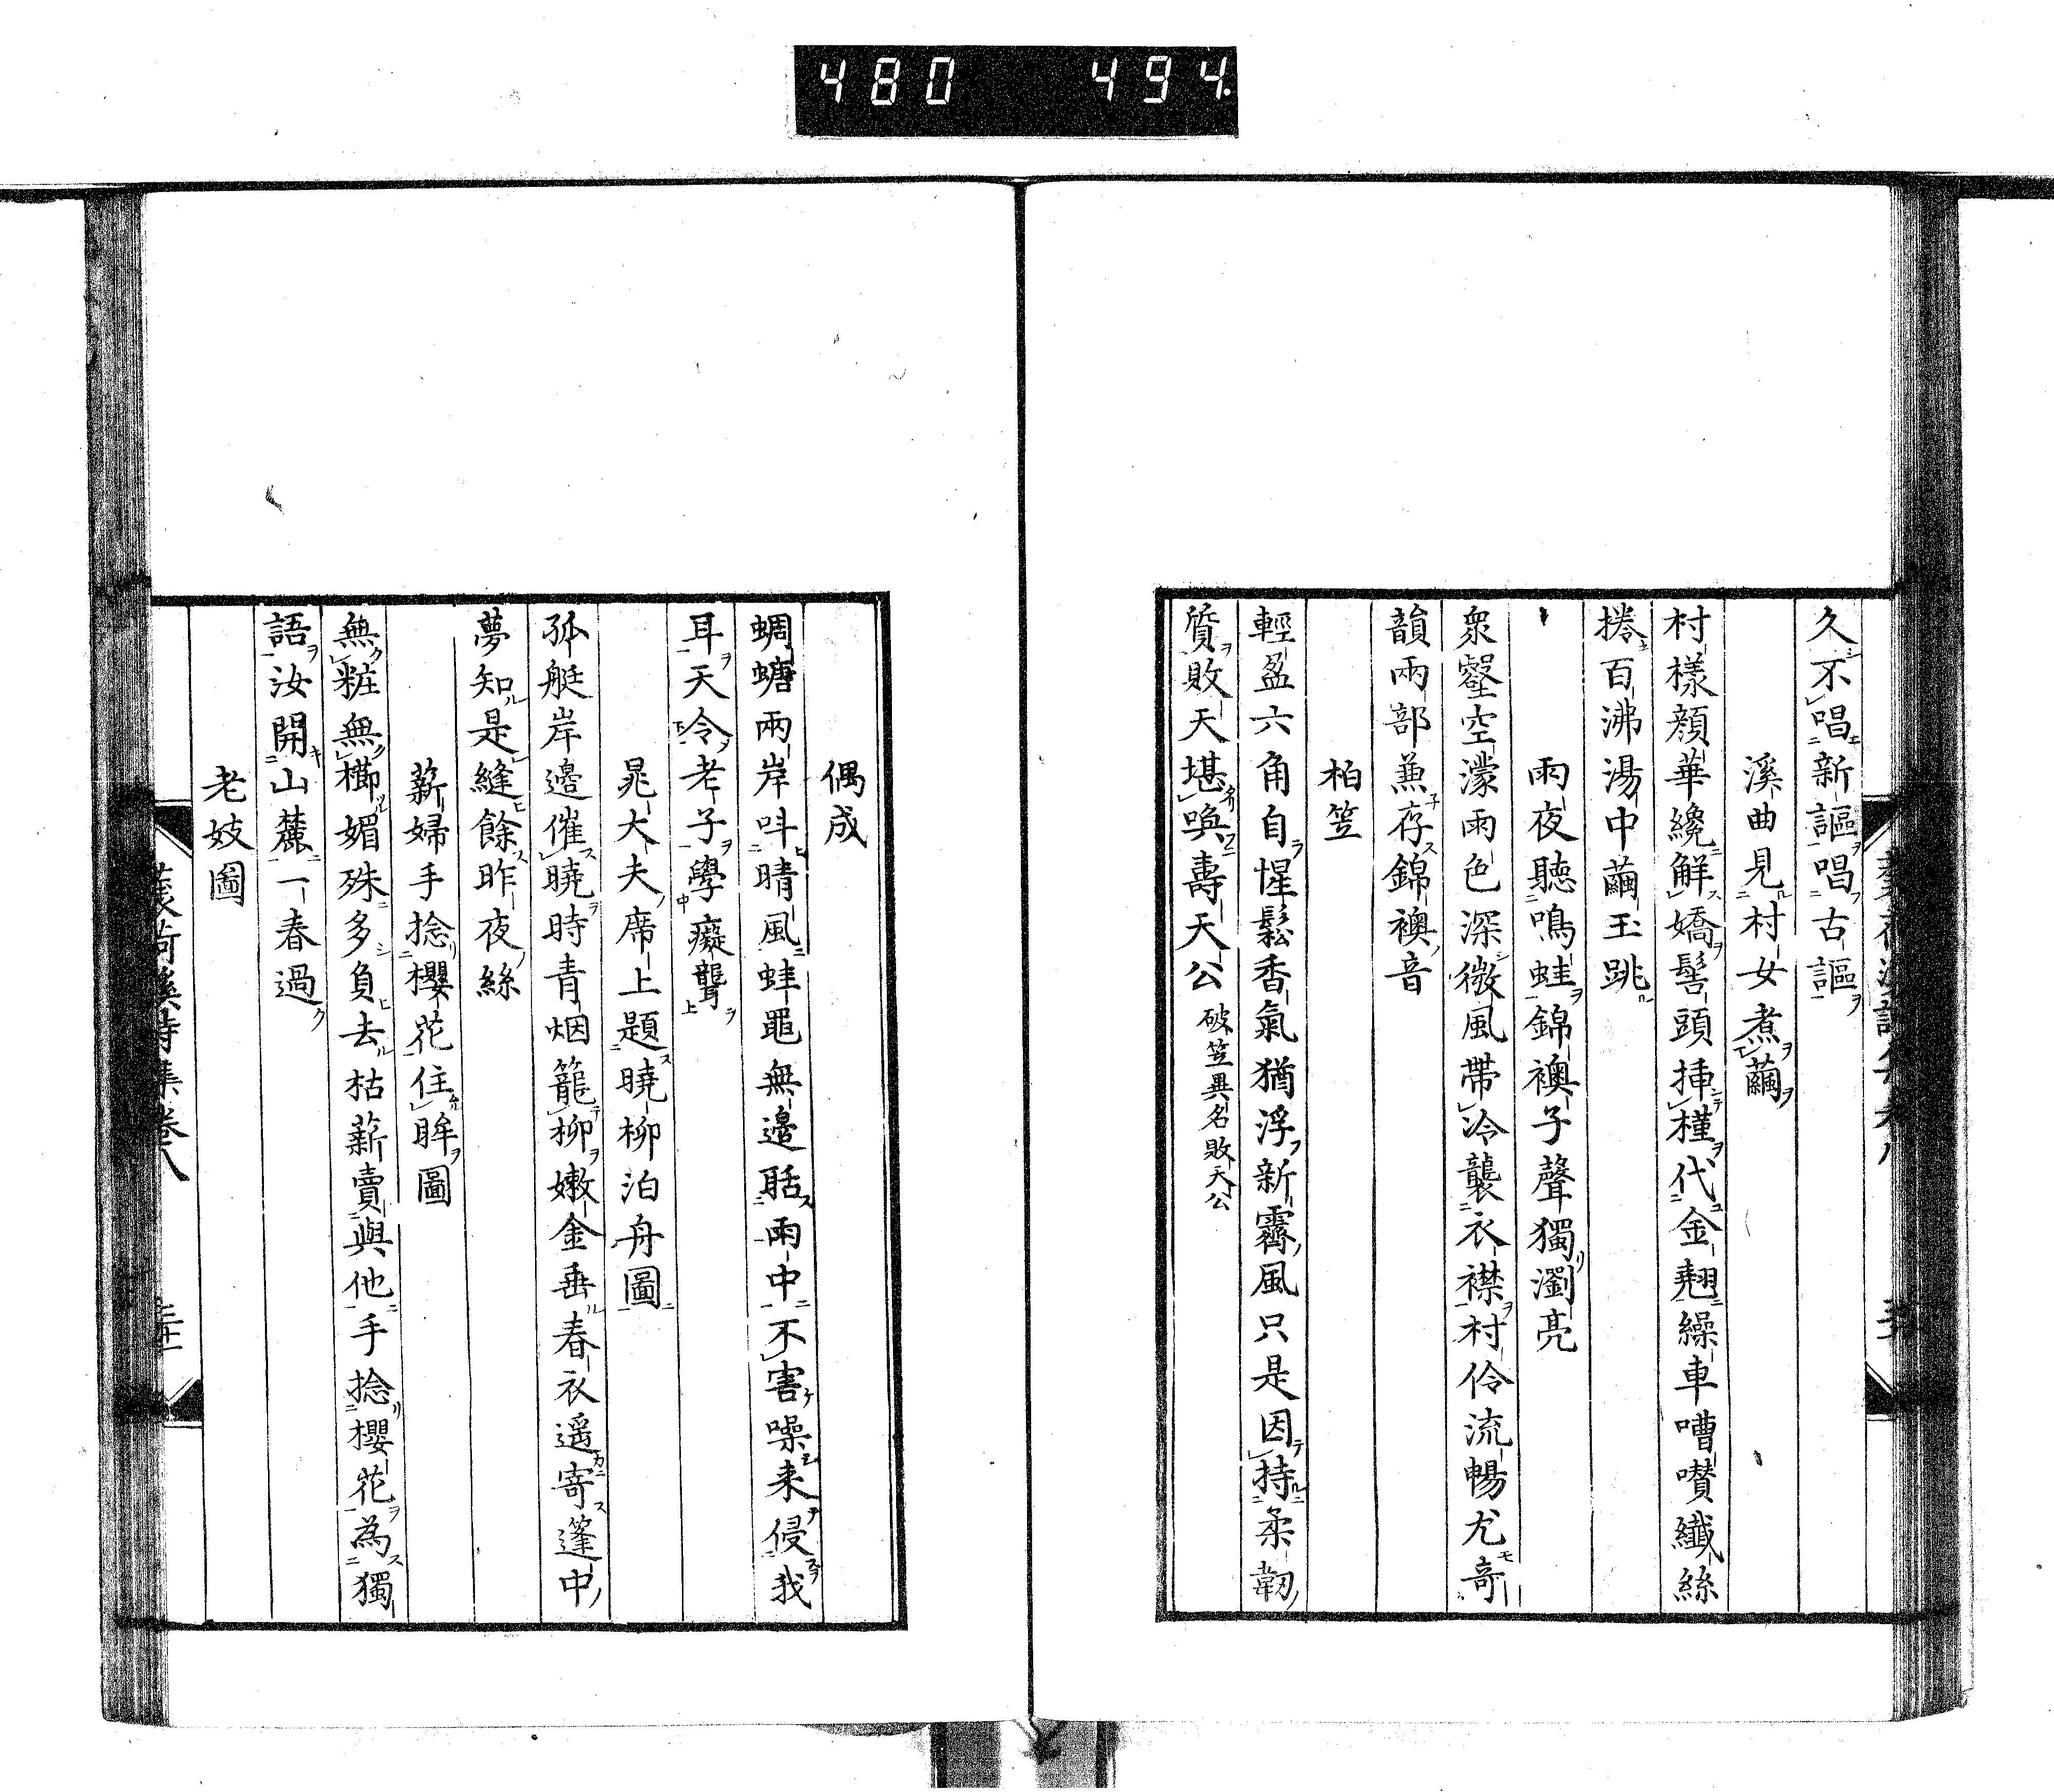 480 494.
久不唱新謳唱古謳
溪曲見村女煮繭
村樣顏華纔鮮嬌髻頭挿槿代金翹繰車嘈囋纖絲
捲百沸湯中繭玉跳
雨夜聽鳴蛙錦襖子聲獨瀏亮
衆壑空濛雨色深微風帶冷襲衣襟村伶流暢尤竒
韻兩部蕪存錦襖音
柏笠
輕盈六角自惺鬆香氣猶浮新霽風只是因持柔韌
質敗天堪喚壽天公 破笠異名敗天公
偶成
蜩螗兩岸呌晴風蛙黽無邊聒雨中不害噪来侵我
耳天令老子學癡聾
晁大夫席上題曉柳泊舟圖
孤艇岸邊催曉時青烟籠柳嫩金垂春衣遥寄篷中
夢知是縫餘昨夜絲
薪婦手捻櫻花住眸圖
無粧無櫛媚殊多負去枯薪賣與他手捻櫻花為獨
語汝開山麓一春過
老妓圖
荷溪詩集卷八